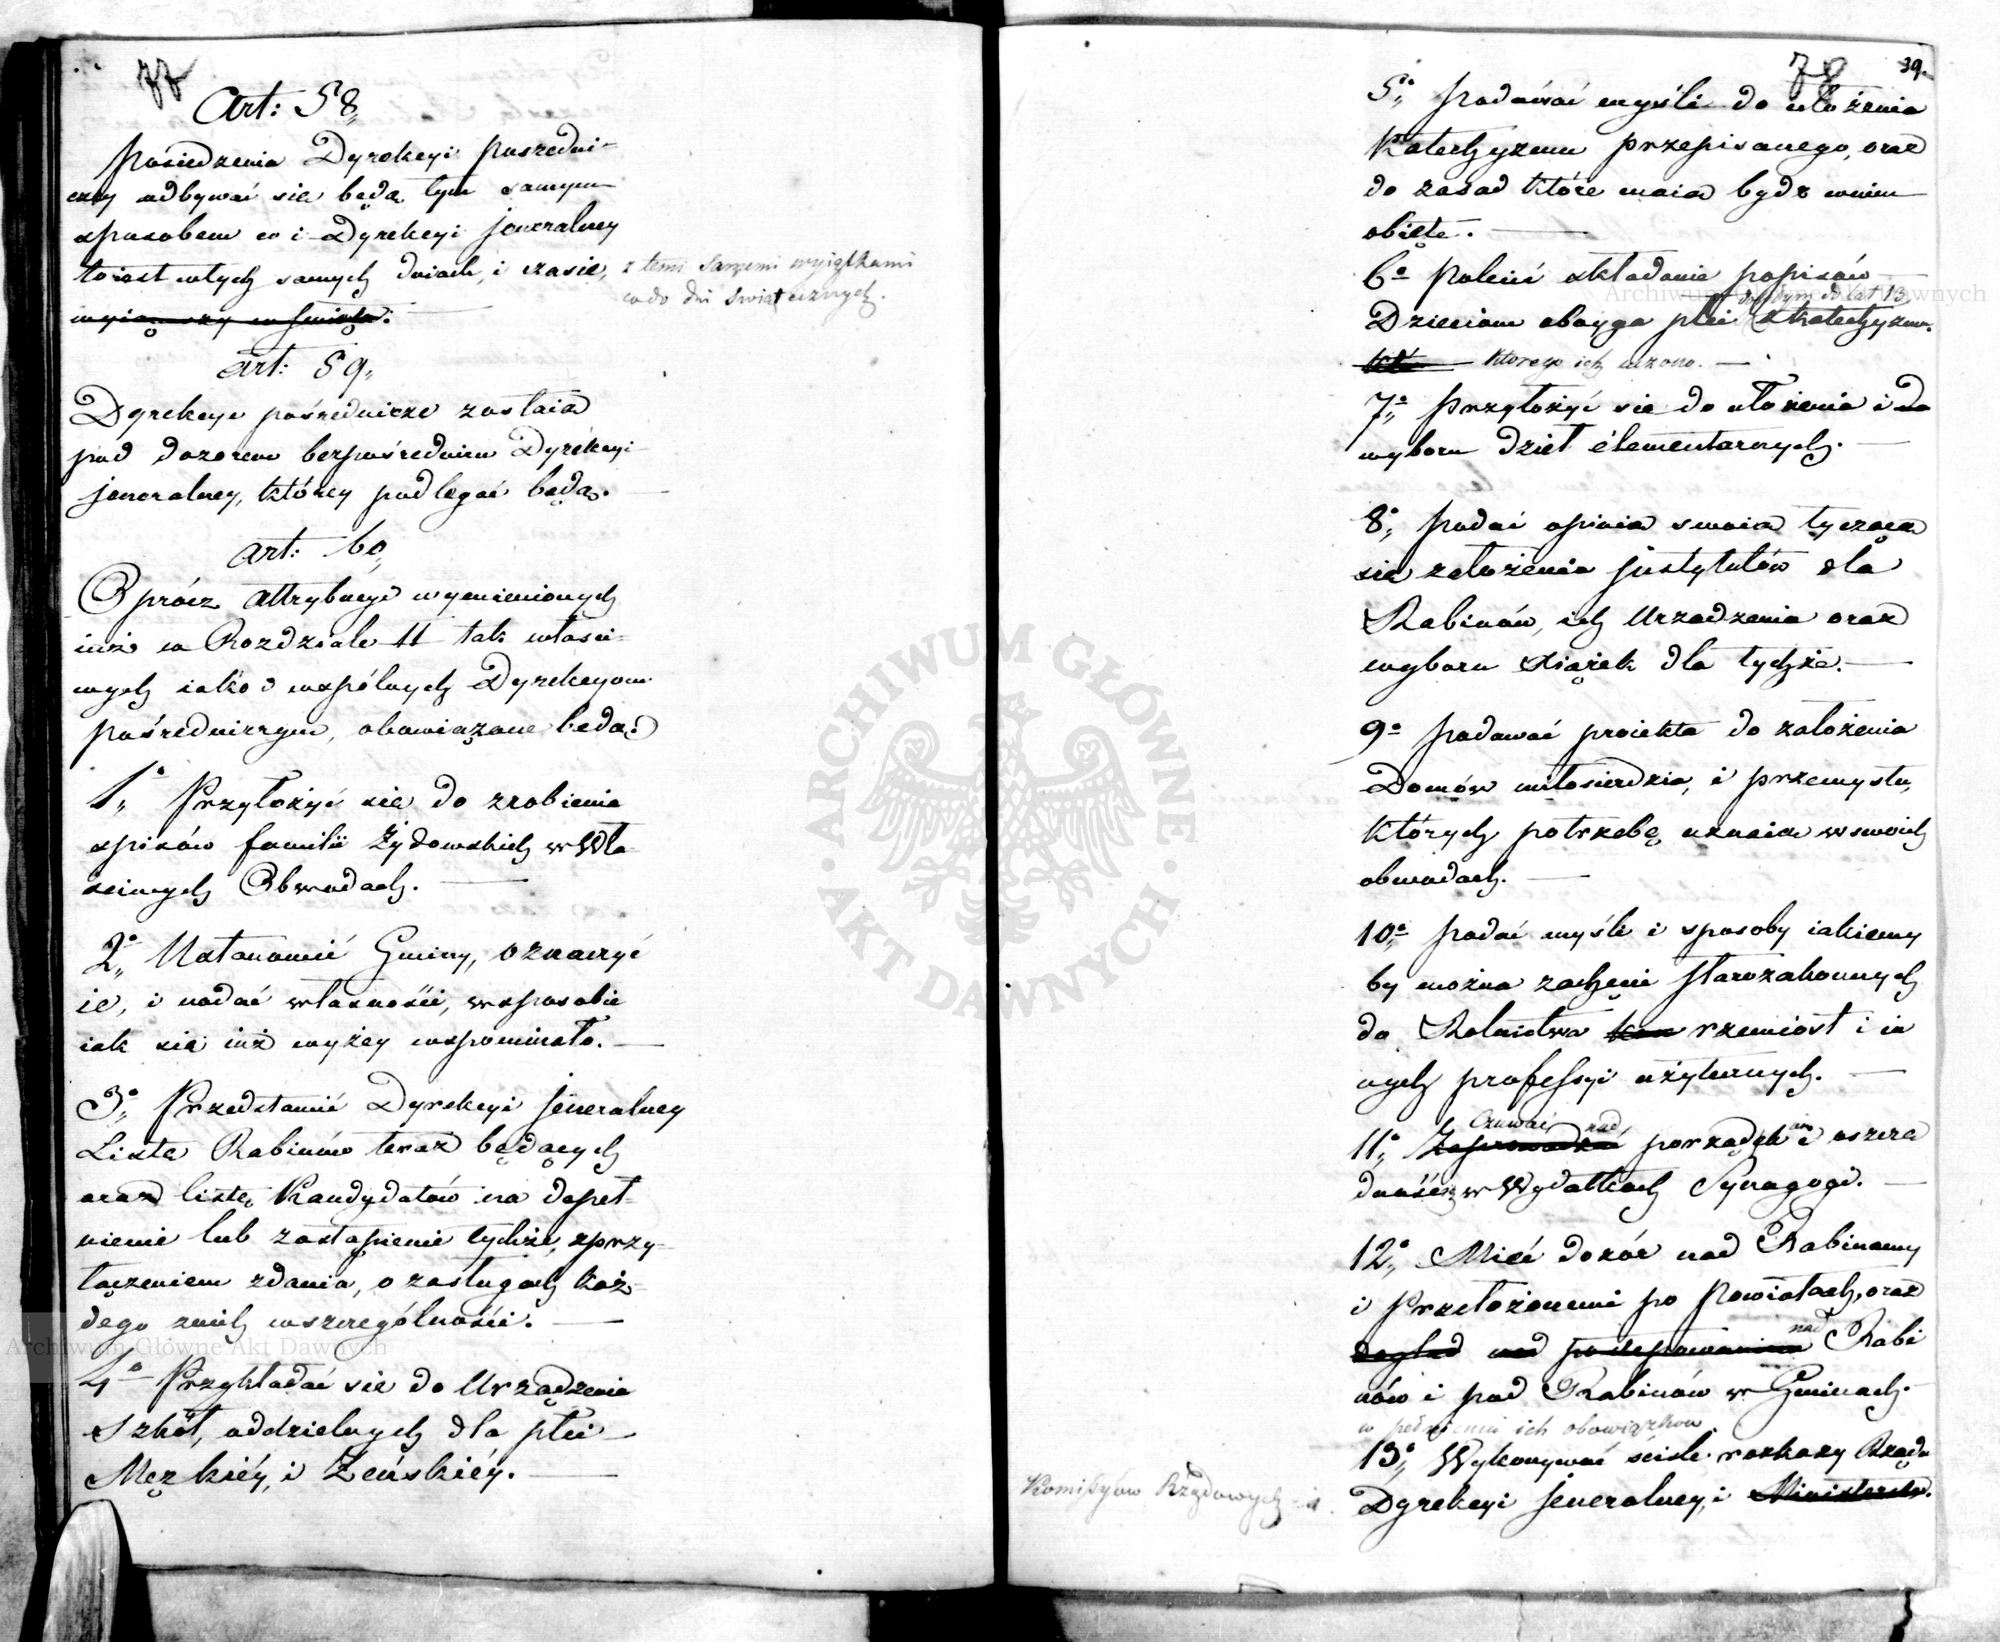 77
Art: 58,
Posiedzenia Dyrekcyi Pośredni-
czey odbywać się będą tym samym
sposobem co i Dyrekcyi Jeneralney
toiest w tych samych dniach, i czasie, z temi samemi wyiątkami
co do dni Swiątecznych.
wyiąwszy w święta.
Art: 59,
Dyrekcye pośrednicze zostaią
pod dozorem bezpośrednim Dyrekcyi
Jeneralney, którey podlegać będą.
Art: 60,
Oprócz Attrybucyi wymienionych
iuż w Rozdziale II tak właści-
wych iako i wspólnych Dyrekcyom
pośredniczym, obowiązane będą:
1o, Przyłożyć się do zrobienia
spisów familii Żydowskich w Wła-
sciwych Obwodach.
2o, Ustanowić Gminy, oznaczyć
ie, i nadać własności, w sposobie
iak się iuż wyżey wspomniało.
3o, Przedstawić Dyrekcyi Jeneralney
Listę Rabinów teraz będących
oraz listę Kandydatów na dopeł-
nienie lub zastąpienie tychże, z przy-
łączeniem zdania, o zasługach każ-
dego z nich w szczególności.
4o Przykładać się do Urządzenia
Szkół, oddzielnych dla płci
Męzkiéy, i Żeńskiéy.
78
39.
5o, Podawać myśli do ułożenia
Katechyzmu przepisanego, oraz
do zasad które maią bydź w nim
obięte.
6o Polecić składanie popisów
dośdym do lat 13,
Dzieciom oboyga płci z Katechyzmu
którego ich uczono.
7o, Przyłożyć się do ułożenia i do
wyboru dzieł élementarnych.
8o, Podać opinią swoią tyczącą
się założenia Jnstytutów dla
Rabinów, ich Urządzenia oraz
wyboru Xiążek dla tychże.
9o Podawać proiekta do założenia
Domów miłosierdzia, i przemysłu,
których potrzebę uznaią w swoich
obwodach.
10o, Podać myśli i sposoby iakiemy
by można zachęcić Starozakonnych
do Rolnictwa rzemiosł i in
nych professyi użytecznych.
Czuwać nad
11o, Zaprowadzać porządek i oszczę
dność w Wydatkach Synagogi.
12o, Mieć dozór nad Rabinamy
i Przełożonemi po Powiatach, oraz
dogląd nad postępowaniem nad Rabi
nów i pod Rabinów w Gminach.
w pełnieniu ich obowiązków.
13o, Wykonywać ściśle rozkazy Rządu
Komissyów Rządowych i
Dyrekcyi Jeneralney, i Ministerstw.
ARCHIWUM GŁÓWNE AKT DAWNYCH
Archiwum Główne Akt Dawnych
Archiwum Główne Akt Dawnych